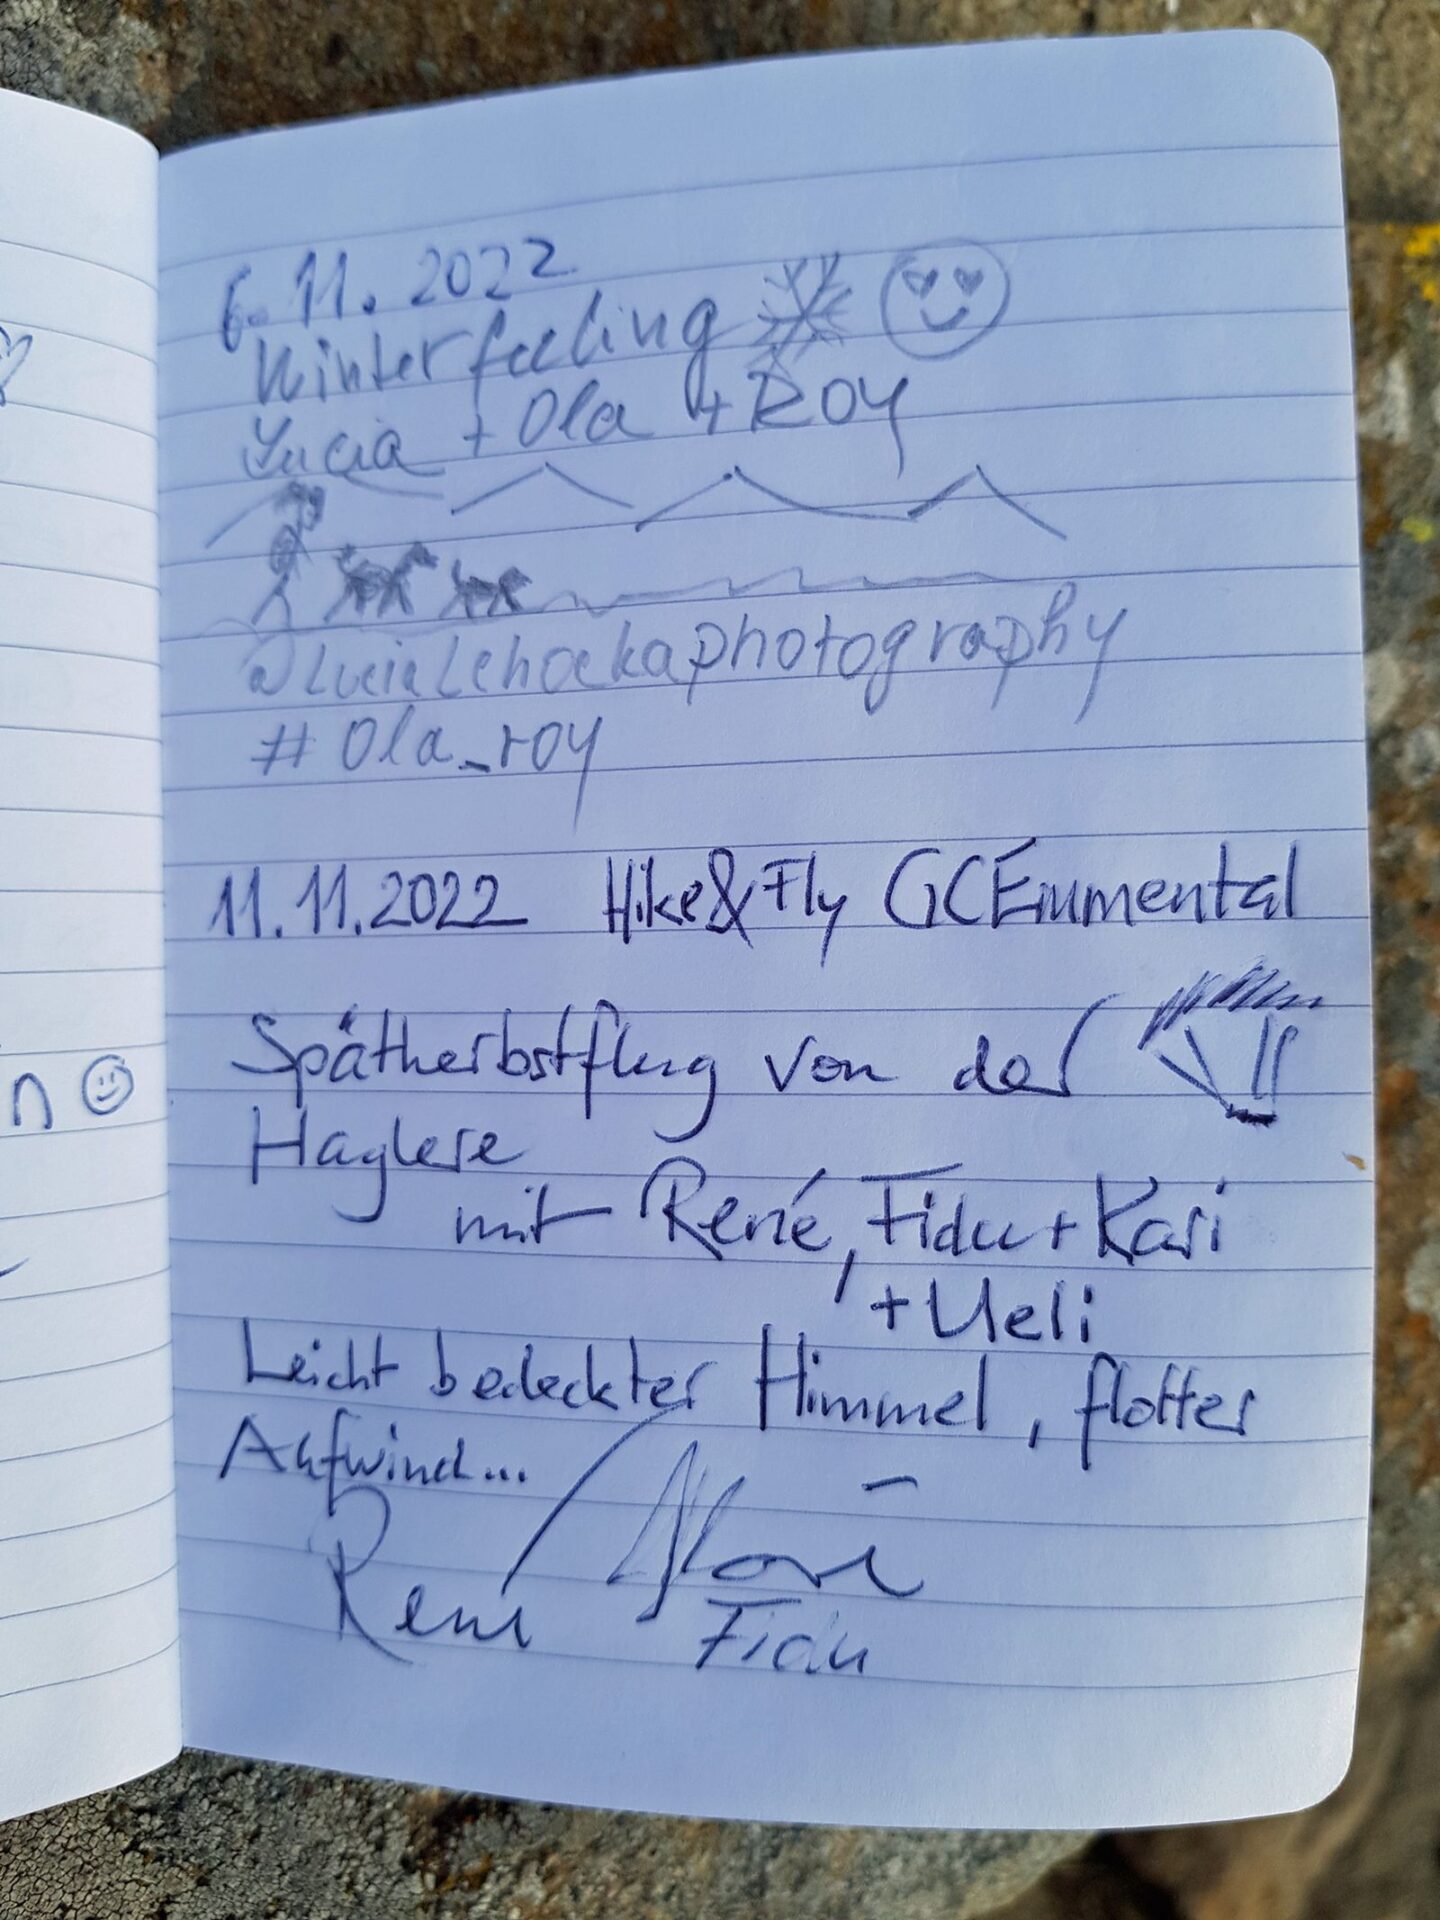 6. 11. 2022
Winterfeeling
Lucia + Ola + Roy
@lucialehockaphotography
#Ola_roy
11.11.2022 Hike&Fly GCEmmental
Spätherbstflug von der
Haglere
mit René, Fidu + Kari
+ Ueli
Leicht bedeckter Himmel, flotter
Aufwind...
René
Fidu